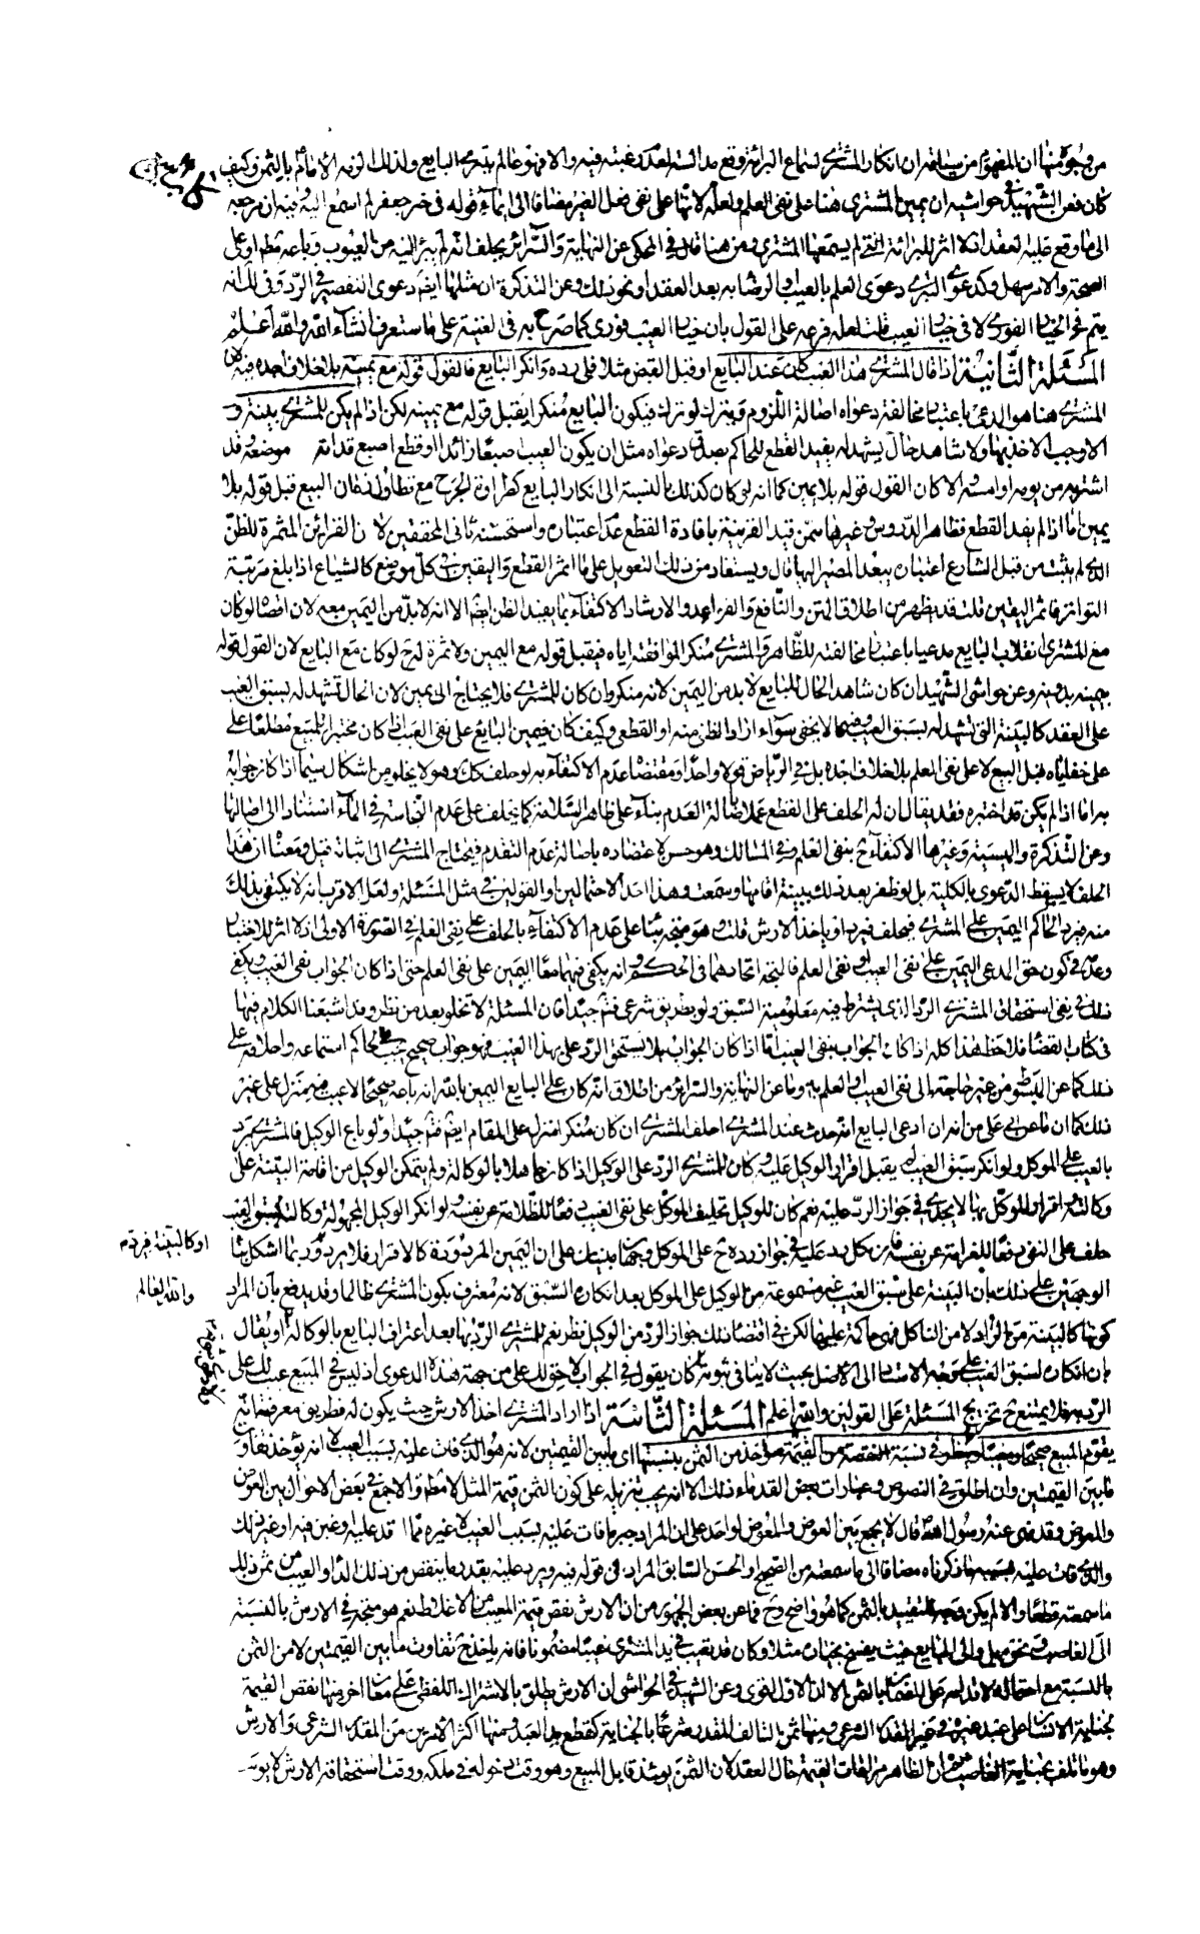 من وجوه منها ان المفهوم من سياقه ان انكار المشتري استماع البرائة وقع مدالسة لعدم رغبته فيه والا فهو عالم بتبري البايع ولذلك لزمه الامام بالثمن وكيف
كان فعن الشهيد في حواشيه ان يمين المشتري هنا على نفي العلم ولعله لانها على نفي فعل الغير مضافا الى ايماء قوله في خبر جعفر لم اسمع اليه وفيه ان مرجعه
الى ما وقع عليه العقد اذ لا اثر للبرائة التي لم يسمعها المشتري ومن هنا قال في المحكي عن النهاية والسرائر يحلف انه لم يبرء اليه من العيوب وباعه مطلقا وعلى
الصحة والامر سهل وكدعوى التبري دعوى العلم بالعيب والرضا به بعد العقد او نحو ذلك وعن التذكرة ان مثلها ايضا دعوى التقصير في الرد وفي انه
يتم في الخيار الفوري لا في خيار العيب قلت لعله فرعه على القول بان خيار العيب فوري كما صرح به في الغنية على ما ستعرف انشاء الله والله اعلم
المسئلة الثانية اذا قال المشتري هذا العيب كان عند البايع او قبل القبض مثلا فلي رده وانكر البايع فالقول قوله مع يمينه بلا خلاف اجده فيه لان
المشتري هنا هو المدعي باعتبار مخالفة دعواه اصالة اللزوم وبترك لو ترك فيكون البايع منكرا يقبل قوله مع يمينه لكن اذا لم يكن للمشتري بينة و
الا وجب الاخذ بها ولا شاهد حال يشهد له يفيد القطع للحاكم بصدق دعواه مثل ان يكون العيب اصبعا زائدا او قطع اصبع قد اندمل موضعه وقد
اشتريه من يومه او امسه والا كان القول قوله بلا يمين كما انه لو كان كذلك بالنسبة الى انكار البايع كطراوة الجرح مع تطاول زمان البيع قبل قوله بلا
يمين اما اذا لم يفد القطع فظاهر الدروس وغيرها ممن قيد القرينة بافادة القطع عدم اعتباره واستحسنه ثاني المحققين لان القرائن المثمرة للظن
الذي لم يثبت من قبل الشارع اعتباره يبعد المصير اليها قال ويستفاد من ذلك التعويل على ما اثمر القطع واليقين في كل موضع كالشياع اذا بلغ مرتبة
التواتر فاثمر اليقين قلت قد يظهر من اطلاق المتن والنافع والقواعد والارشاد الاكتفاء بما يفيد الظن ايضا الا انه لا بد من اليمين معه لان اقصاه لو كان
مع المشتري انقلاب البايع مدعيا باعتبار مخالفته للظاهر والمشتري منكرا لموافقته اياه فيقبل قوله مع اليمين ولا ثمرة له ح لو كان مع البايع لان القول قوله
بيمينه بدونه وعن حواشي الشهيد ان كان شاهد الحال للبايع لا بد من اليمين لانه منكر وان كان للمشتري فلا يحتاج الى يمين لان الحال تشهد له بسبق العيب
على العقد كالبينة التي تشهد له بسبق العيب وفيه ما لا يخفى سواء اراد الظني منه او القطعي وكيف كان فيمين البايع على نفي العيب اذا كان مختبرا للمبيع مطلعا على
على خفاياه قبل البيع لا على نفي العلم بلا خلاف اجده بل في الرياض قولا واحدا ومقتضاه عدم الاكتفاء به لو حلف كك وهو لا يخلو من اشكال سيما اذا كان جوابه
به اما اذا لم يكن قد اختبره فقد يقال ان له الحلف على القطع عملا باصالة العدم بناء على ظاهر السلامة كما يحلف على عدم النجاسة في الماء استنادا الى اصالتها
وعن التذكرة والمبسوط وغيرها الاكتفاء ح بنفي العلم وفي المسالك وهو حسن لاعتضاده باصالة عدم التقدم فيحتاج المشتري الى اثباته قيل ومعناه ان هذا
الحلف لا يسقط الدعوى بالكلية بل لو ظفر بعد ذلك ببينة اقامها وسمعت وهذا احد الاحتمالين او القولين في مثل المسئلة ولعل الاقرب انه لا يكتفى بذلك
منه فيرد الحاكم اليمين على المشتري فيحلف فيرد او ياخذ الارش قلت وهو متجه بناء على عدم الاكتفاء بالحلف على نفي العلم في الصورة الاولى اذ لا اثر للاختبار
وعدمه في كون حق المدعي اليمين على نفي العيب او نفي العلم فالمتجه اتحادهما في الحكم وانه يكفي فيهما معا اليمين على نفي العلم حتى اذا كان الجواب نفي العيب ويكفي
ذلك في نفي استحقاق المشتري الرد الذي يشترط فيه معلومية السبق ولو بطريق شرعي فتم جيدا فان المسئلة لا تخلو بعد من نظر وقد اشبعنا الكلام فيها
في كتاب القضاء فلاحظ هذا كله اذا كان الجواب بنفي العيب اما اذا كان الجواب بلا تستحق الرد علي بهذا العيب فهو جواب صحيح يجب على الحاكم استماعه واحلافه على
ذلك كما عن المبسوط من غير حاجة الى نفي العيب او العلم به وما عن النهاية والسرائر من اطلاق انه كان على البايع اليمين بالله انه باعه صحيحا لا عيب فيه منزل على غير
ذلك كما ان ما عن ابي علي من انه ان ادعى البايع انه حدث عند المشتري احلف المشتري ان كان منكرا منزل على المقام ايضا فتم جيدا ولو باع الوكيل فالمشتري يرد
بالعيب على الموكل ولو انكر سبق العيب لم يقبل اقرار الوكيل عليه وكان للمشتري الرد على الوكيل اذا كان جاهلا بالوكالة ولم يتمكن الوكيل من اقامة البينة على
وكالته واقرار الموكل بها لا يجدي في جواز الرد عليه نعم كان للوكيل تحليف الموكل على نفي العيب دفعا للظلامة عن نفسه ولو انكر الوكيل المجهولة وكالته سبق العيب
حلف على النفي دفعا للغرامة عن نفسه فان نكل رد عليه في جواز رده ح على الموكل وجهان مبنيان على ان اليمين المردودة كالاقرار فلا يرد وربما اشكل بناء
او كالبينة فيرد م
الوجهين على ذلك بان البينة على سبق العيب غير مسموعة من الوكيل على الموكل بعد انكاره السبق لانه معترف بكون المشتري ظالما وقد يدفع بان المراد
والله العالم
كونها كالبينة من الراد لا من الناكل فهي حاكمة عليها لكن في اقتضاء ذلك جواز الرد من الوكيل نظر نعم للمشتري الرد بها بعد اعتراف البايع بالوكالة او يقال
بان انكاره لسبق العيب على وجه الاستناد الى الاصل بحيث لا ينافي ثبوته كان يقول في الجواب لا حق لك علي من جهة هذه الدعوى اذ ليس في المبيع عيب لك علي
الرد به فلا يمتنع ح تخريج المسئلة على القولين والله اعلم المسئلة الثالثة اذا اراد المشتري اخذ الارش حيث يكون له فطريق معرفته انه
يقوم المبيع صحيحا ومعيبا وينظر في نسبة النقيصة من القيمة فيؤخذ من الثمن بنسبتها اي ما بين القيمتين لانه هو الذي فات عليه بسبب العيب لا انه يؤخذ تفاوت
ما بين القيمتين وان اطلق في النصوص وعبارات بعض القدماء ذلك الا انه يجب تنزيله على كون الثمن قيمة المثل لا مطلقا والا جمع في بعض الاحوال بين العوض
والمعوض وقد نهى عنه رسول الله قال لا يجمع بين العوض والمعوض لواحد على ان المراد جبر ما فات عليه بسبب العيب لا غيره مما اقدم عليه وغبن فيه او غير ذلك
والذي فات عليه بسببه ما ذكرناه مضافا الى ما سمعته من الصحيح او الحسن السابق المراد في قوله فيه ويرد عليه بقدر ما ينقص من ذلك الداء او العيب من ثمن ذلك
ما سمعته قطعا والا لم يكن وجه للتقييد بالثمن كما هو واضح وح فما عن بعض الجمهور من ان الارش نقص قيمة المعيب من الاغلاط نعم هو متجه في الارش بالنسبة
الى الغاصب في نحوه بل والى البايع حيث يفسخ بخياره مثلا وكان قد تعيب في يد المشتري عيبا مضمونا فانه ياخذ ح تفاوت ما بين القيمتين لا من الثمن
بالنسبة مع احتماله وعن الشهيد في الحواشي ان الارش يطلق بالاشتراك اللفظي على معان اخر منها نقص القيمة
بجناية الانسان على عبد غيره في غير المقدر الشرعي ومنها ثمن التالف المقدر شرعا بالجناية كقطع يد العبد ومنها اكثر الامرين من المقدر الشرعي والارش
وهو ما تلف بجناية الغاصب ان الظاهر مراعات القيمة حال العقد لان الثمن يومئذ قابل المبيع وهو وقت دخوله في ملكه ووقت استحقاقه الارش لا يوم